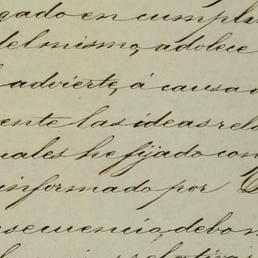 gado en cumpl
del mismo, adolece
advierte, á causa
ente las ideas rela
uales he fijado con
informado por
secuencia, debo m
relativas